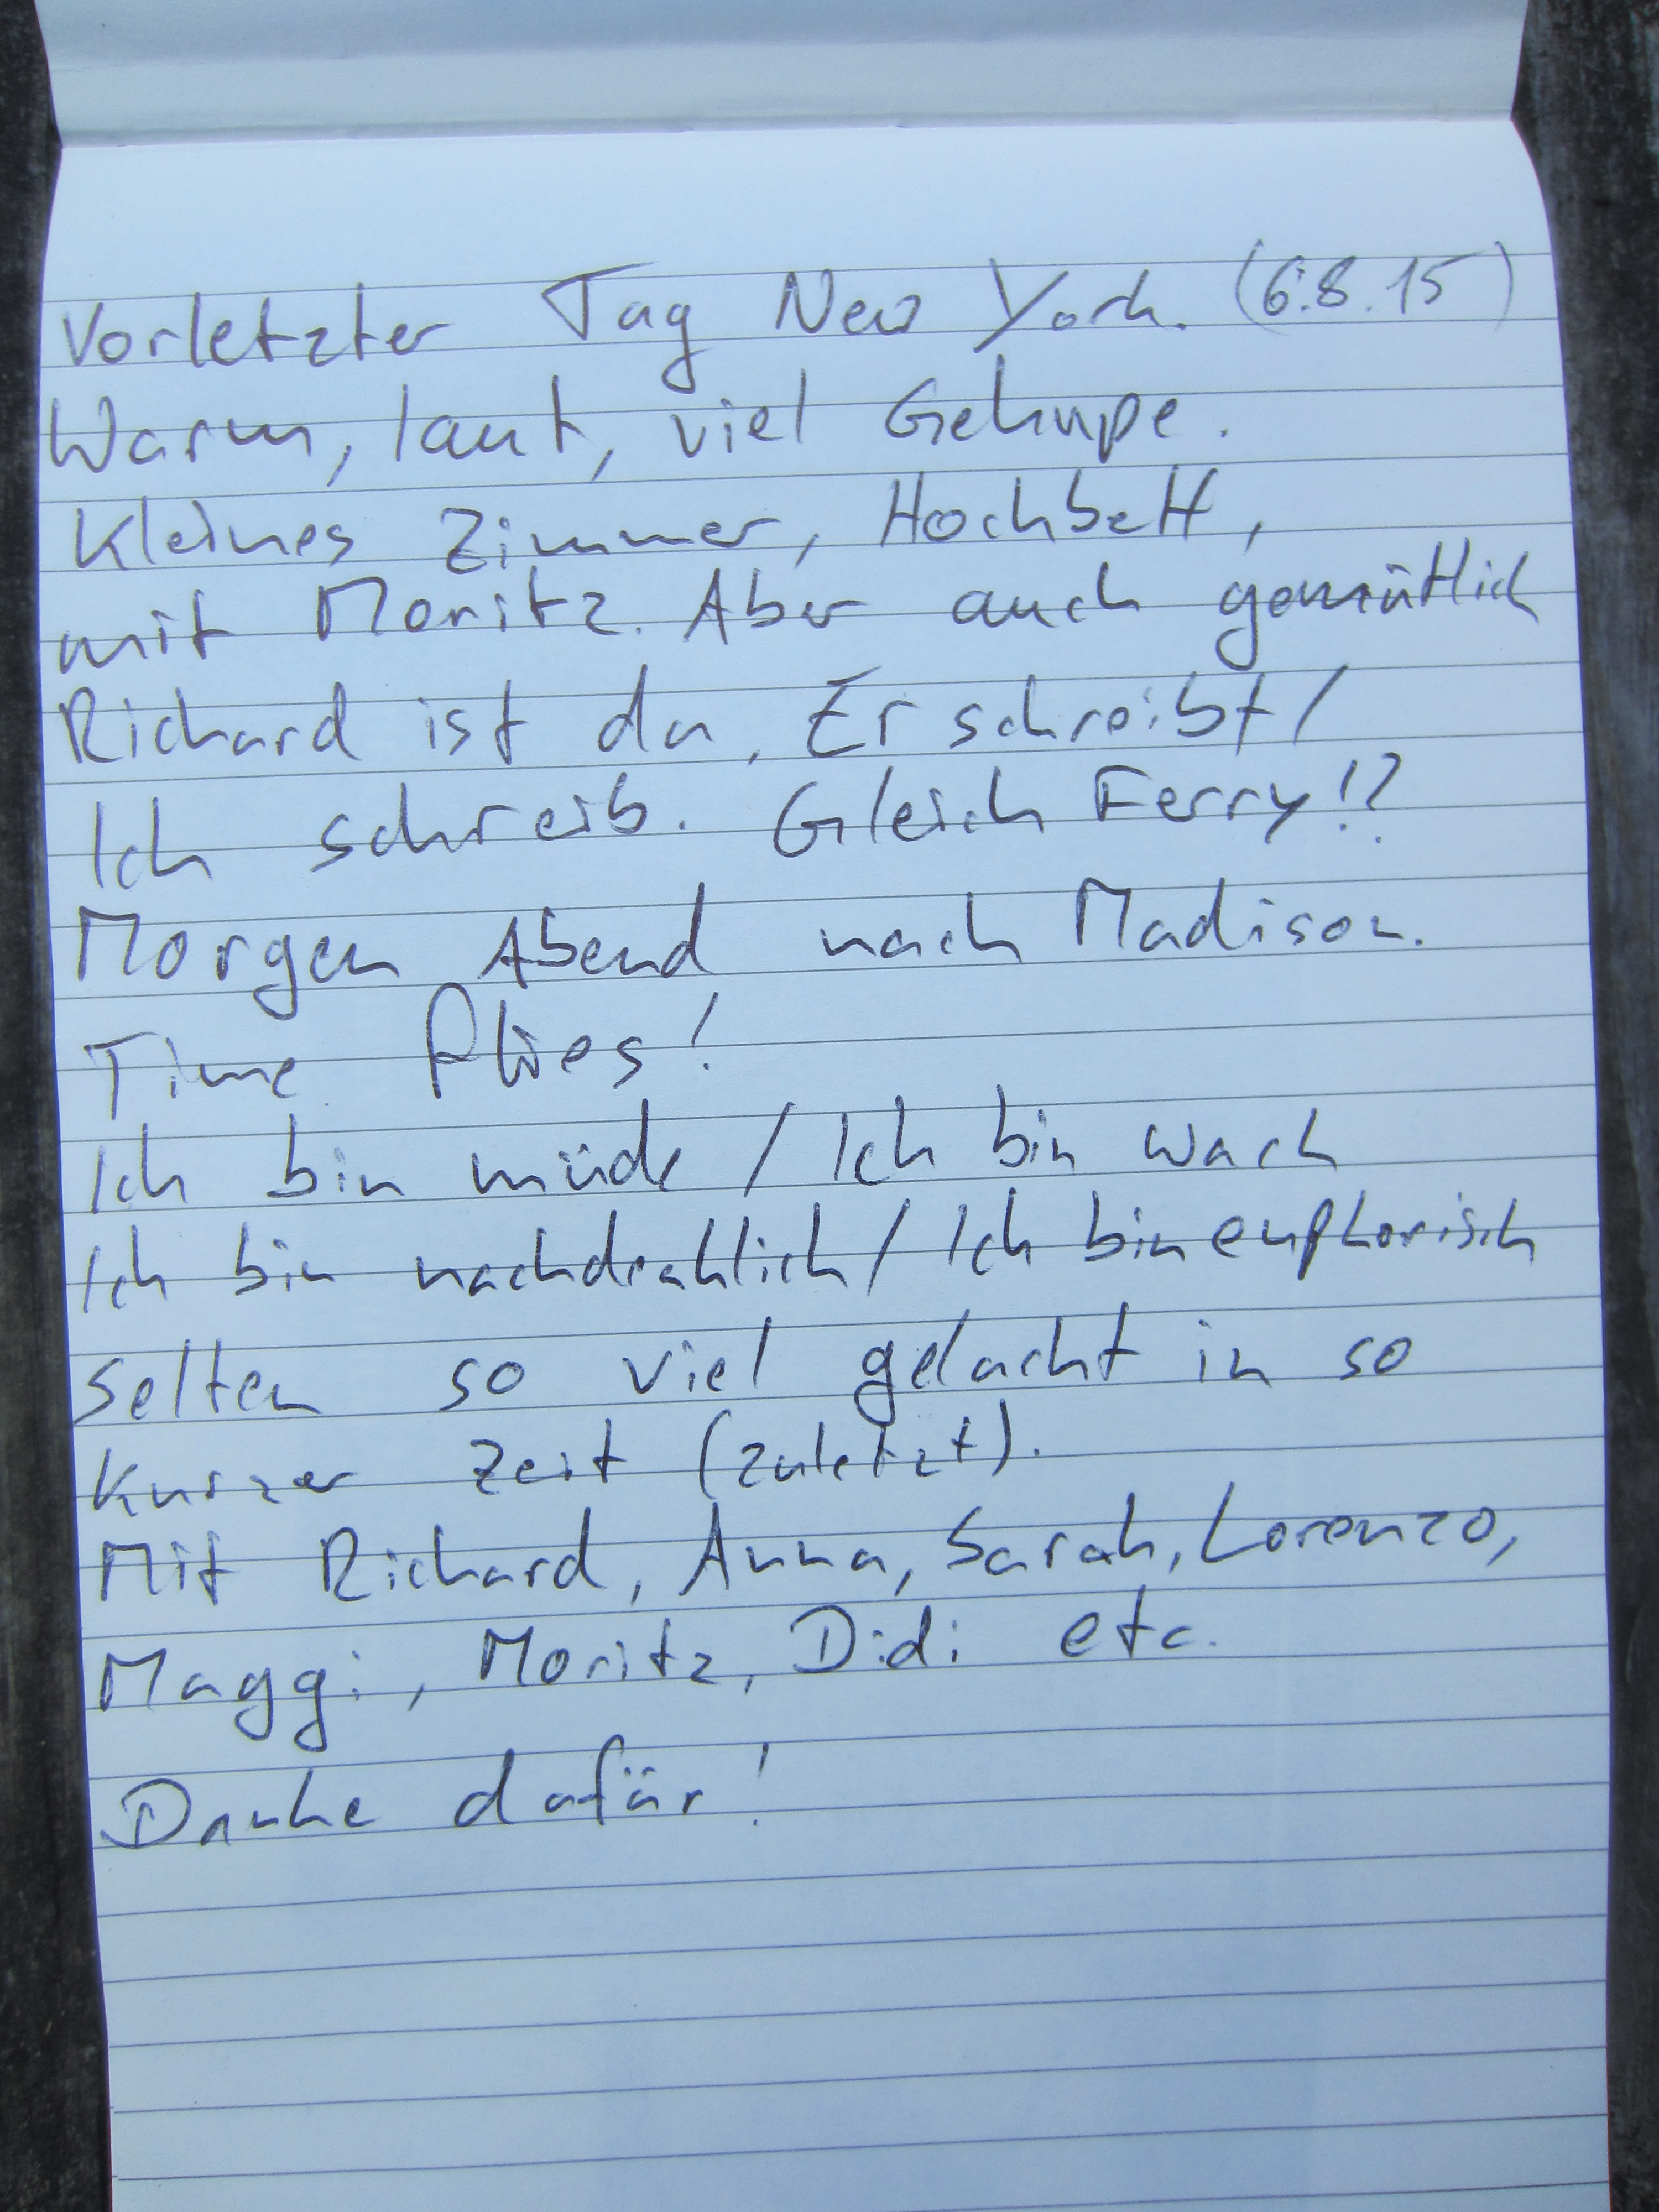 Vorletzter Tag New York. (6.8.15)
Warm, laut, viel Gehupe.
Kleines Zimmer, Hochbett,
mit Moritz. Aber auch gemütlich
Richard ist da. Er schreibt/
Ich schreib. Gleich Ferry!?
Morgen Abend nach Madison.
Time flies!
Ich bin müde / Ich bin wach
Ich bin nachdenklich / Ich bin euphorisch
Selten so viel gelacht in so
kurzer Zeit (zuletzt).
Mit Richard, Anna, Sarah, Lorenzo,
Maggi, Moritz, Didi etc.
Danke dafür!